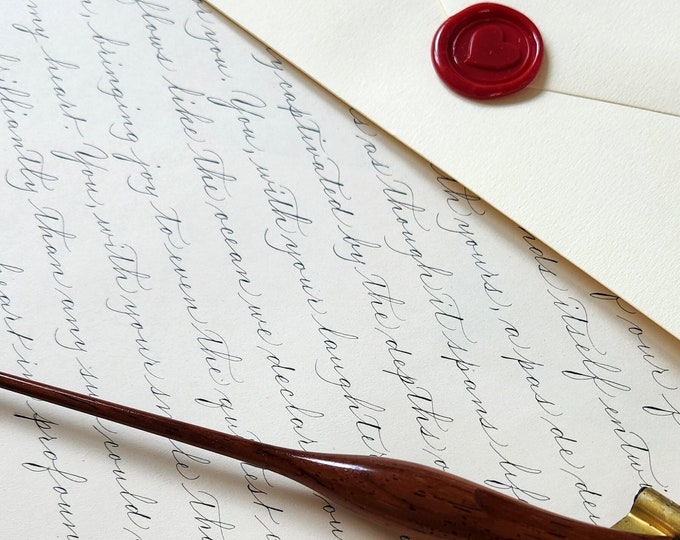 of our f
nds itself entwi
th yours, a pas de de
s as though it spans lif
y captivated by the depths o
h you. You, with your laughter
flows like the ocean we declar
, bringing joy to even the quietest
my heart. You, with your smile tha
brilliantly than any sun could
heart in profoun